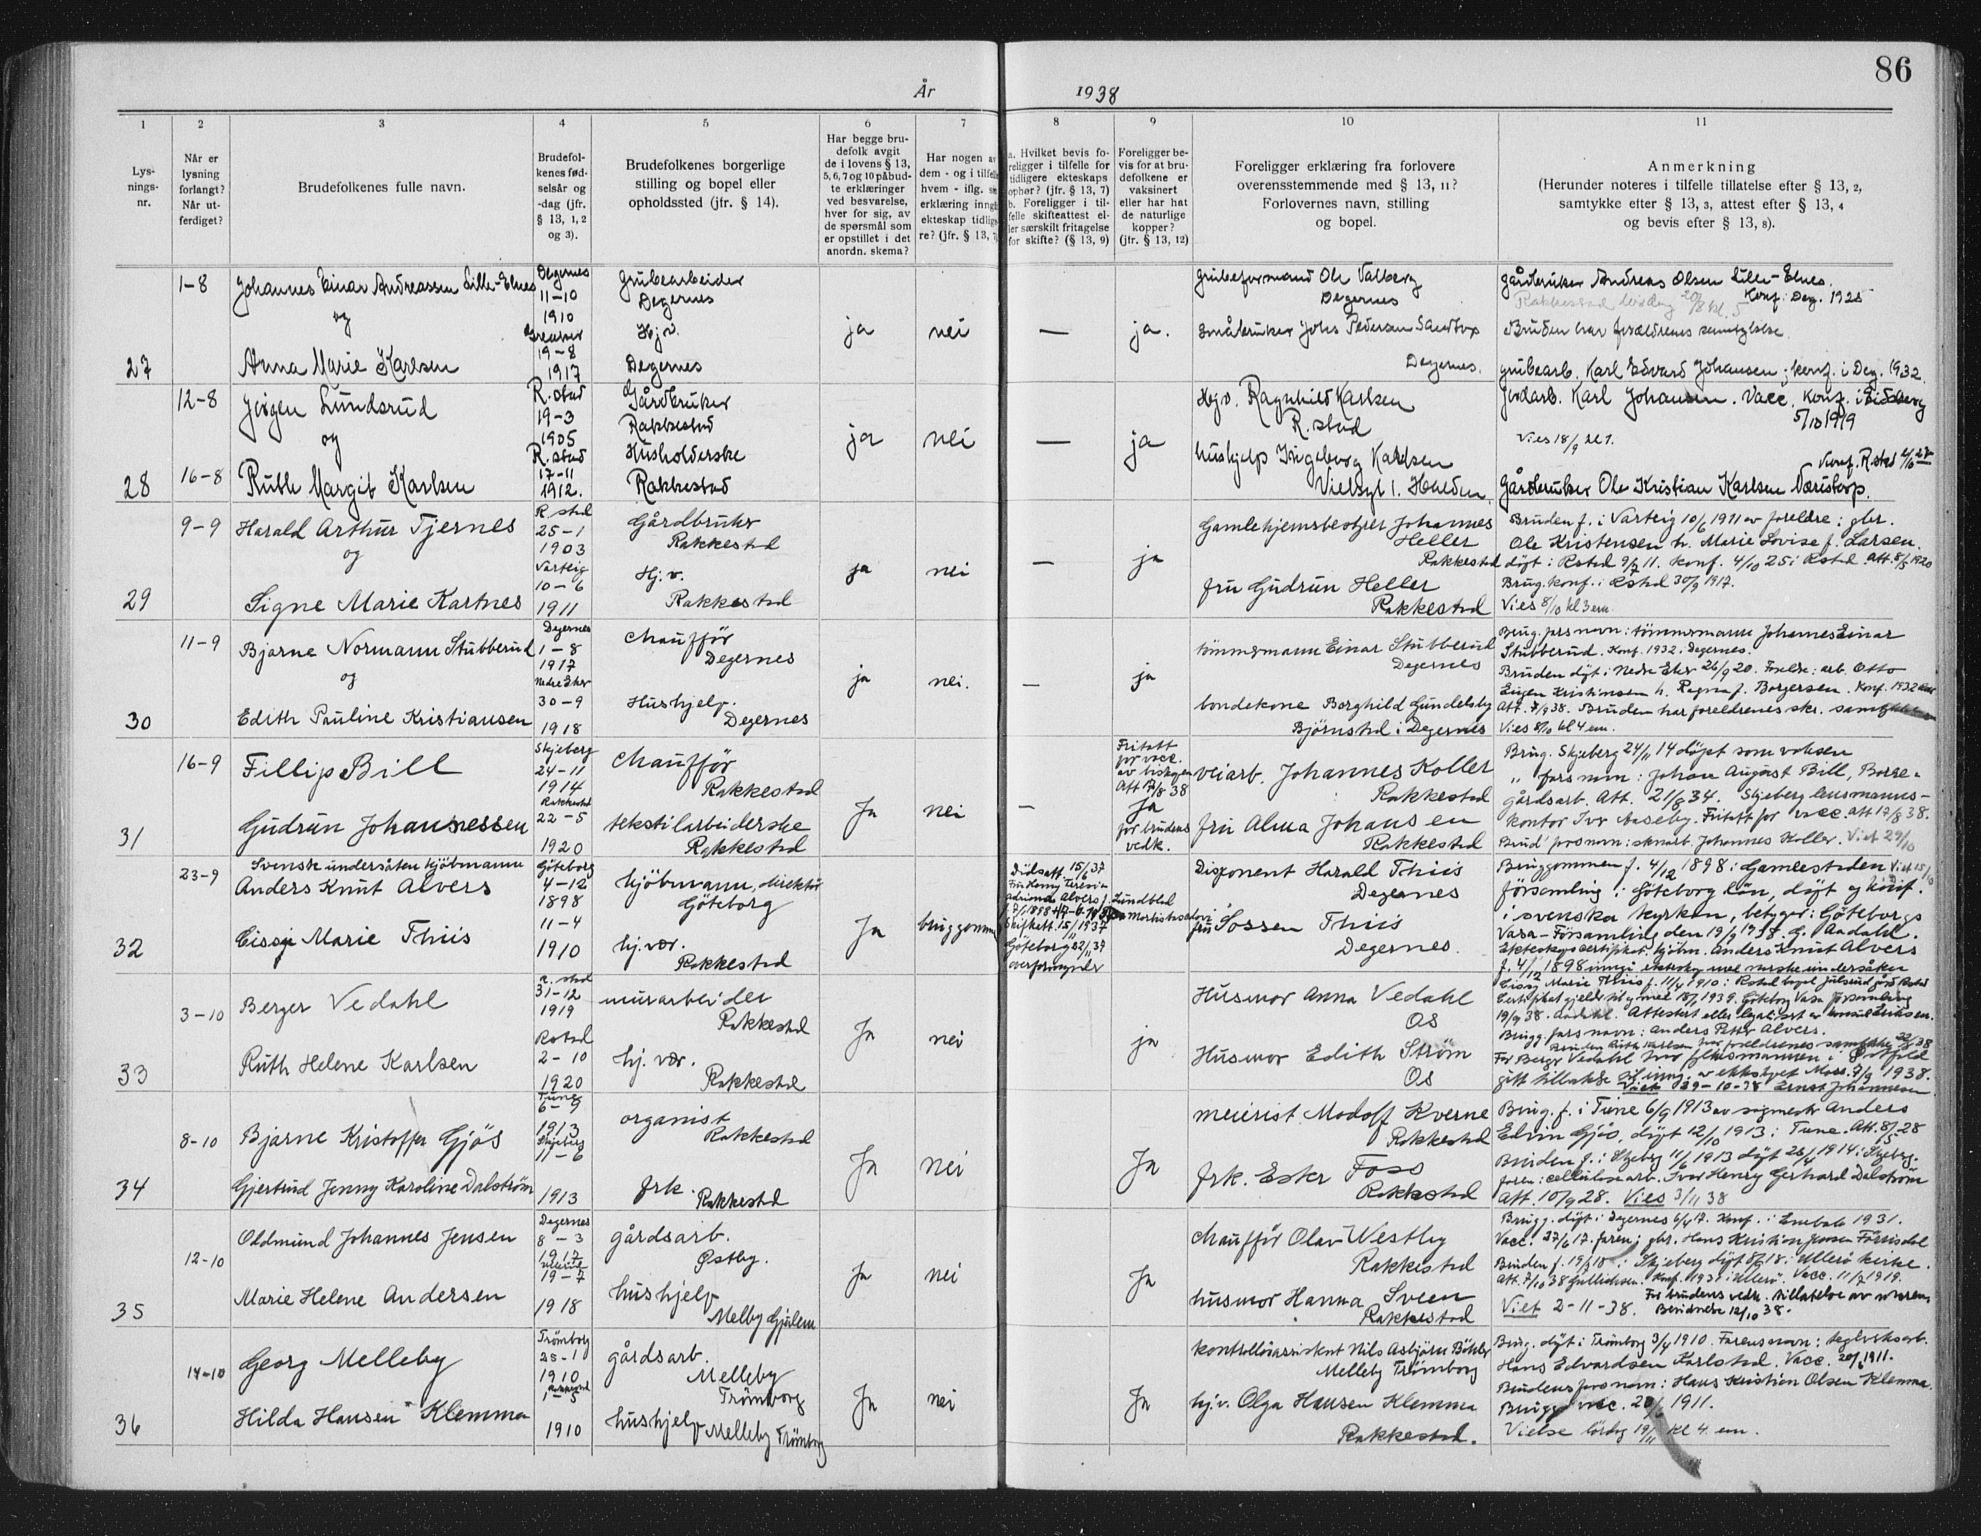 86
År 1938
1 2 3 4 5 6 7 8 9 10 11
Lys-
nings-
nr.
Når er
lysning
forlangt?
Når ut-
ferdiget?
Brudefolkenes fulle navn.
Brudefol-
kenes fød-
selsår og
-dag (jfr.
§ 13, 1, 2
og 3).
Brudefolkenes borgerlige
stilling og bopel eller
opholdssted (jfr. § 14).
Har begge bru-
defolk avgit
de i lovens § 13,
5, 6, 7 og 10 påbud-
te erklæringer
ved besvarelse,
hver for sig, av
de spørsmål som
er opstillet i det
anordn. skema?
Har nogen av
dem - og i tilfelle
hvem - iflg. sin
erklæring inngå
ekteskap tidlige-
re? (jfr. § 13, 7)
a. Hvilket bevis fo-
religger i tilfelle for
tidligere ekteskaps
ophør? (jfr. § 13, 7)
b. Foreligger i til-
felle skifteattest el-
ler særskilt fritagelse
for skifte? (§ 13, 9)
Foreligger be-
vis for at bru-
defolkene er
vaksinert
eller har hat
de naturlige
kopper?
(jfr. § 13, 12)
Foreligger erklæring fra forlovere
overensstemmende med § 13, 11?
Forlovernes navn, stilling
og bopel.
Anmerkning
(Herunder noteres i tilfelle tillatelse efter § 13, 2,
samtykke efter § 13, 3, attest efter § 13, 4
og bevis efter § 13, 8).
27
1-8
Johannes Einar Andreassen Lille-Elnes
og
Anna Marie Karlsen
Degernes
11-10
1910
19-8
1917
Grubearbeider
Degernes
Hj.v.
Degernes
ja
nei
—
ja.
Grubeformand Ole Valberg
Degernes
Småbruker Johs Pedersen
Degernes.
gårdbruker Andreas Olsen Lille-Elnes.
Konf: Deg. 1925
Rakkestad 20/8 kl. 5
Bruden har forældrenes samtykke
grubearb. Karl Edvard Johansen; konf. i Deg. 1932.
28
12-8
16-8
Jørgen Lundsrud
og
Ruth Margit Karlsen
R.stad
19-3
1905
R.stad
17-11
1912.
Gårdbruker
Rakkestad
Husholderske
Rakkestad
ja
nei
—
ja
Hgv. Ragnhild Karlsen
R.stad
hushjelp Ingeborg Karlsen
Halden.
Jordarb. Karl Johansen. Vacc. Konf. i Eidsberg
5/10 1919
Vies 18/9 kl 1.
Konf. R.stad
Gårdbruker Ole Kristian Karlsen
29
9-9
Harald Arthur Tjernes
og
Signe Marie Kartnes
R. stad
25-1
1903
Varteig
10-6
1911
Gårdbruker
Rakkestad
Hj.v.
Rakkestad
ja
nei
—
ja
Gamlehjemsbestyrer Johannes
Heller
Rakkestad
fru Gudrun Heller
Rakkestad
Bruden f. i Varteig 10/6 1911 av foreldre: gbr.
Ole Kristensen h. Marie Lovise f. Larsen.
døpt i Rstad 9/7 11. Konf. 4/10 25 i Rstad. Att. 8/5 1920
Brug. konf. i Rstad 30/9 1917.
Vies 8/10 kl 3 em.
30
11-9
Bjarne Normann Stubberud
og
Edith Pauline Kristiansen
Degernes
1-8
1917
Nedre Eker
30-9
1918
Chauffør
Degernes
Hushjelp.
Degernes
ja
nei.
—
ja
tømmermann Einar Stubberud
Degernes
bondekone Borghild Gundelsby
Bjørnstad i Degernes
Brug. fars navn: tømmermann Johannes Einar
Stubberud. Konf. 1932. Degernes.
Bruden døpt i Nedre Eker 26/9 20. Foreldre: arb. Otto
Eugen Kristiansen h. Ragna f. Borgersen. Konf. 1932
Att. 7/9 38. Bruden har foreldrenes skr. samtykke
Vies 8/10 kl 4 em.
31
16-9
Fillip Bill
Gudrun Johannessen
Skjeberg
24-11
1914
Rakkestad
22-5
1920
Chauffør
Rakkestad
tekstilarbeiderske
Rakkestad
Ja
nei
—
Fritatt
for vacc.
av biskopen
Att 17/8 38
Ja
for brudens
vedk.
veiarb. Johannes Koller
Rakkestad
fru Alma Johansen
Rakkestad
Brug. Skjeberg 24/11 14 døpt som voksen
" fars navn: Johan August Bill, Borge-
gårdsarb. Att. 21/8 34. Skjeberg lensmanns-
kontor Ivar Aaseby. Fritatt for vacc. att 17/8 38.
Brud' farsnavn: Johannes Koller. Viet 29/10
32
23-9
Svenske undersåtten kjøbmann
Anders Knut Alvers
Cissy Marie Thiis
Göteborg
4-12
1898
11-4
1910
kjøbmann, direktør
Göteborg
hj. vær.
Rakkestad
Ja
bruggommen
Dødsatt. 15/6 37
Skifteatt. 15/11 1937
Göteborg 22/11 37
overformynder
Lundblad
Disponent Harald Thiis
Degernes
fru Sossen Thiis
Degernes
Bruggommen f. 4/12 1898 i Gamlestaden Viet 15/10
församling i Göteborg län, døpt og konf.
i svenska kyrkan, betyger: Göteborgs
Vasa-Församling den 19/9 1938. G. Aadahl.
Ekteskapscertifikat. kjøbm. Anders Knut Alvers
f. 4/12 1898 inngå ekteskap med norske undersåtten
Cissy Marie Thiis f. 11/4 1910 i Rstad
Certifikat gjelder til og med 18/1 1939. Göteborg Vasa Församling
19/9 38. Aadahl. Attestert eller legalisert av konsul Eriksen.
Brugg fars navn: Anders Petter Alvers.
33
3-10
Berger Vedahl
Ruth Helene Karlsen
R. stad
31-12
1919
Rstad
2-10
1920
murarbeider
Rakkestad
hj. vær.
Rakkestad
Ja
nei
ja
Husmor Anna Vedahl
Os
Husmor Edith Strøm
Os
Bruden Ruth Karlsen har foreldrenes samtykke 22/9 38
For Berger Vedahl har fylkesmannen i Østfold
gitt tillatelse til inng. av ekteskapet Moss. 7/9 1938.
Viet 29-10-38 Ernst Johannesen
34
8-10
Bjarne Kristoffer Gjøs
Gjertrud Jenny Karoline Dalstrøm
Tune
6-9
1913
Skjeberg
11-6
1913
organist
Rakkestad
frk.
Rakkestad
Ja
nei
Ja
meierist Modolf Kverne
Rakkestad
frk. Ester Foss
Rakkestad
Brug. f. i Tune 6/9 1913 av sagmester Anders
Edvin Gjøs, døpt 12/10 1913 i Tune. Att. 8/5 28
Bruden f. i Skjeberg 11/6 1913 døpt 26/4 1914 i Skjeberg.
faren: cellulosearb. Ivar Henry Gerhard Dalstrøm
Att. 10/9 28. Vies 3/11 38
35
12-10
Oldmund Johannes Jensen
Marie Helene Andersen
Degernes
8-3
1917
Ullerøi
19-7
1918
gårdsarb.
Østby.
hushjelp
Melby Gjulem
Ja
nei
Ja
Chauffør Olav Westby
Rakkestad
husmor Hanna Sveen
Rakkestad
Brugg. døpt i Degernes 6/4 17. Konf. i Enebak 1931.
Vacc. 27/6 17. faren: gbr. Hans Kristian Jensen
Bruden f. 19/7 18 i Skjeberg døpt 8/9 18 i Ullerø kirke.
Att. 7/10 38 Gullichsen. Konf. 1931 i Ullerø. Vacc. 11/7 1919.
For brudens vedk. tillatelse av
Viet 2-11-38. 12/10 38.
36
14-10
Georg Melleby
Hilda Hansen Klemma
Trømborg
25-1
1910
Rakkestad
1-5
1910
gårdsarb.
Melleby
Trømborg
hushjelp
Melleby Trømborg
Ja
nei
Ja
kontrollassistent Nils Asbjørn Böhler
Melleby Trømborg
hj.v. Olga Hansen Klemma
Rakkestad.
Brug. døpt i Trømborg 3/4 1910. Farens navn: teglverksarb.
Hans Edvardsen Karlstad. Vacc. 20/6 1911.
Brudens farsnavn: Hans Kristian Olsen Klemma.
Brugg vacc. 20/6 1911.
Vielse lördag 19/11 kl 4 em.